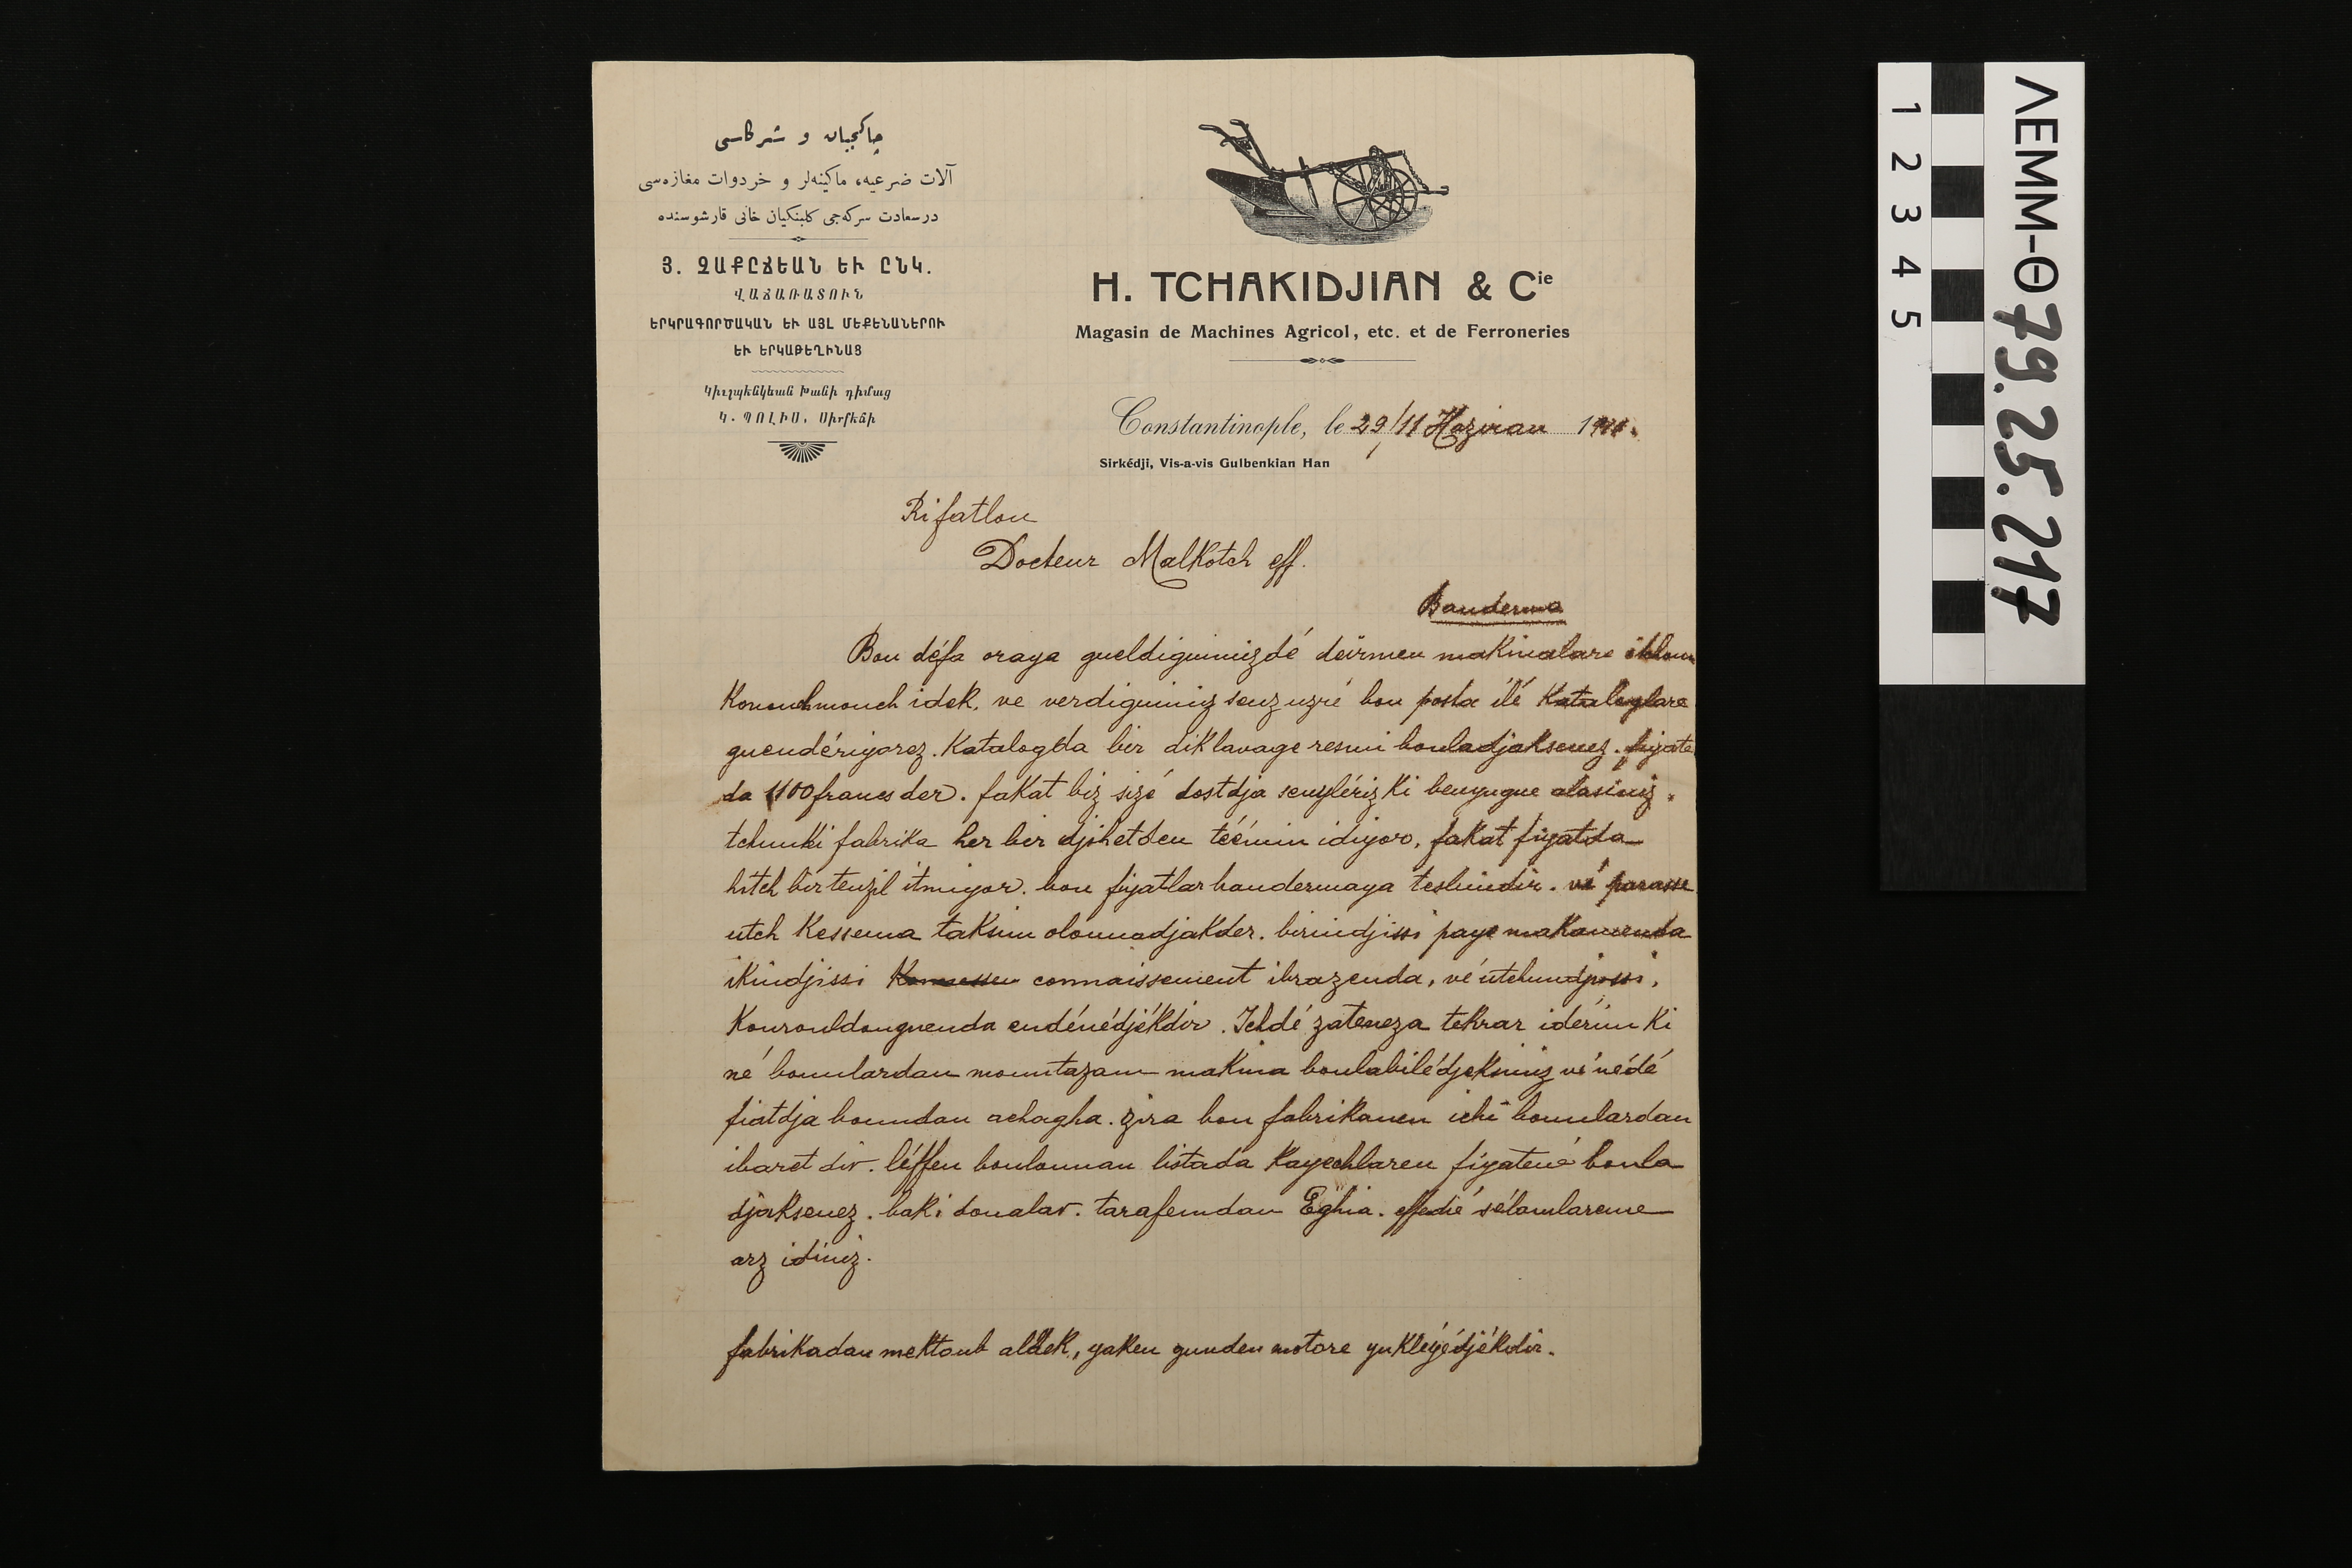 چاکیجیان و شرکاسی
آلات ضرعیه، ماکینه‌لر و خردوات مغازه‌سی
درسعادت سرکه‌جی کلبنکیان خانی قارشوسنده
Յ. ՉԱՔԸՃԵԱՆ ԵՒ ԸՆԿ.
ՎԱՃԱՌԱՏՈՒՆ
ԵՐԿՐԱԳՈՐԾԱԿԱՆ ԵՒ ԱՅԼ ՄԵՔԵՆԱՆԵՐՈՒ
ԵՒ ԵՐԿԱԹԵՂԻՆԱՑ
Կիւլպէնկեան Խանի դիմաց
Կ. ՊՈԼԻՍ, Սիրքէճի
H. TCHAKIDJIAN & Cie
Magasin de Machines Agricol, etc. et de Ferroneries
Constantinople, le 29/11 Haziran 191
Sirkédji, Vis-a-vis Gulbenkian Han
Rifatlou
Docteur Malkotch eff.
Banderma
Bou défa oraya gueldiguimizdé deirmen makinalare
Konouchmouch idek, ve verdiguimiz seuz uzré bou posta ilé Kataloglare
gueundériyorez. Katalogda bir diklavage resmi bouladjaksenez. fiyate
da 1100 francs der. fakat biz sizé dostdja seuyleriz ki beuyugue alasiniz.
tchunki fabrika her bir djihetden téémin idiyor, fakat fiyatda
hitch bir tenzil itmiyor. bou fiyatlar bandermaya teslimdir. vé parasse
utch Kessema taksim olounadjakder. birindjissi paye makamenda
ikindjissi connaissement ibrazenda, vé utchundjussi,
Kourouldouguenda eudénédjékdir. Ichdé zateneza tekrar iderim ki
né bounlardan mountazam makina boulabilédjeksiniz vé nédé
fiatdja boundan achagha. zira bou fabrikanen ichi bounlardan
ibaret dir. léffen boulounan listada Kayechlaren fiyatené boula
djaksenez. baki doualar. tarafemdan Eghia. effedié sélamlareme
arz idiniz.
fabrikadan mektoub aldek, yaken gunden motore yukléyédjékdir.
ΛΕΜΜ-Θ79.25.217
1 2 3 4 5